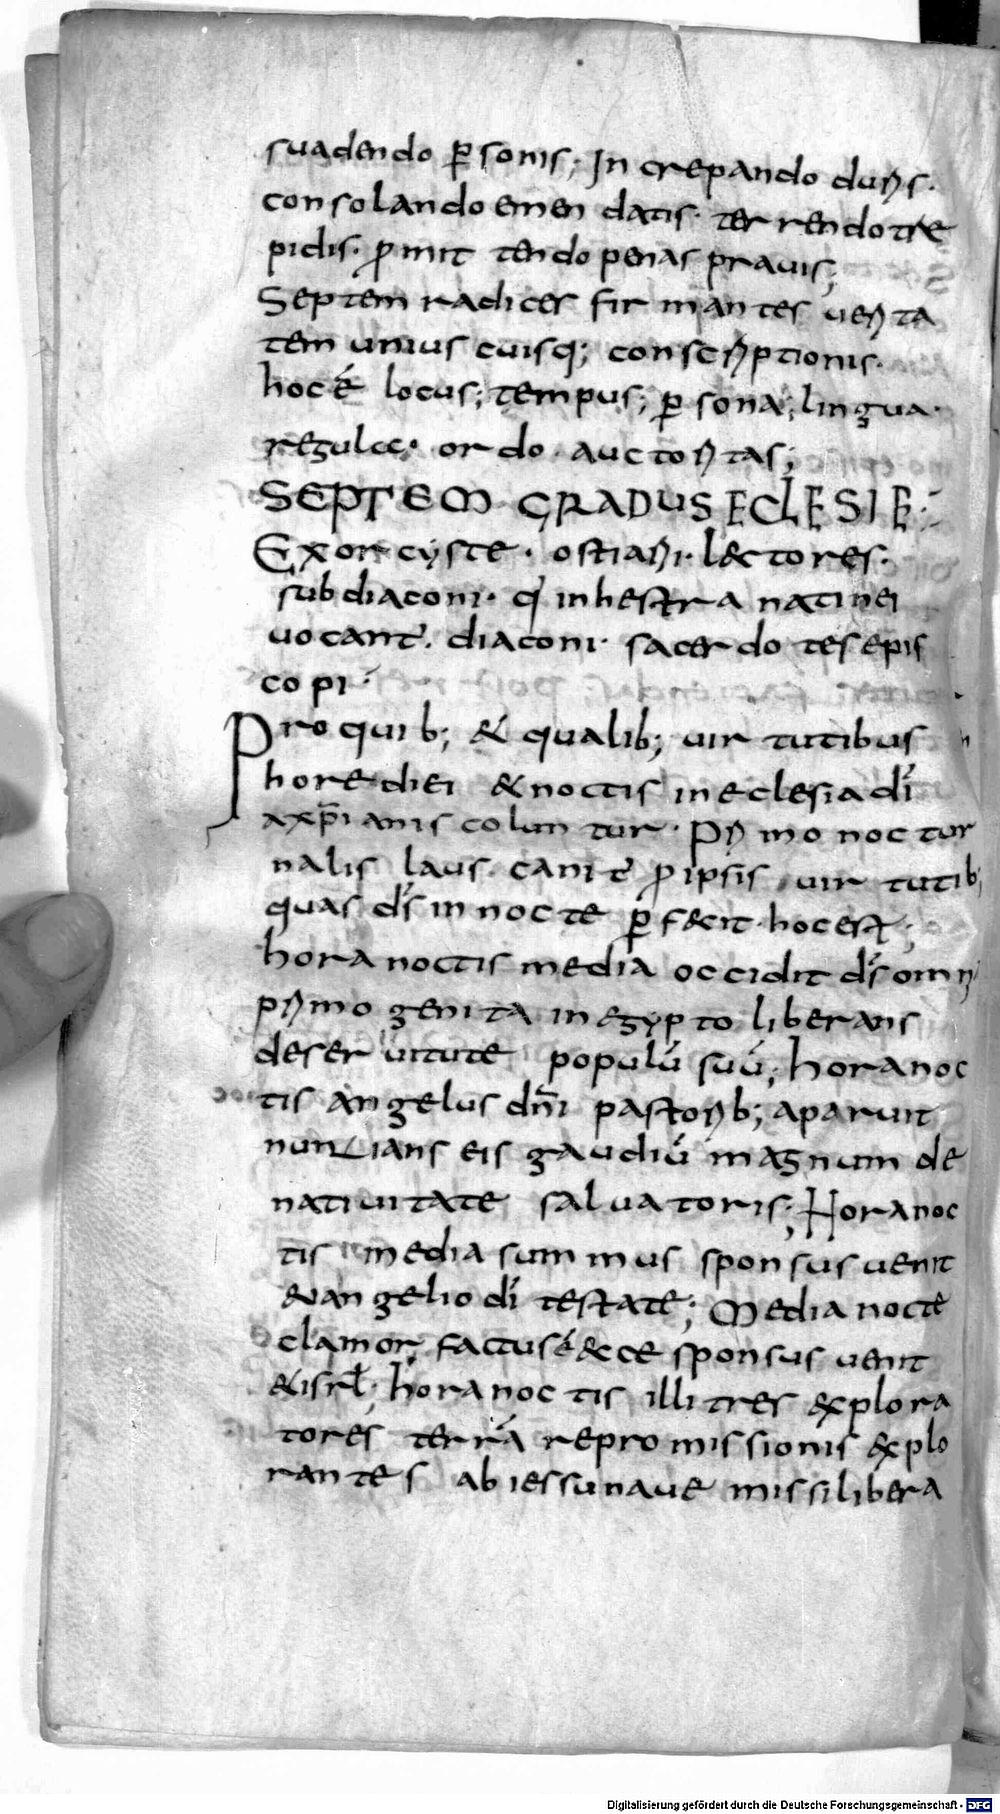 suadendo ꝑsonis; In crepando duris.
consolando emendatis. terrendo tre
pidis. ꝓmittendo penas prauis;
Septem radices firmantes uerita
tem unius cuiusq; conscriptionis.
hoc ē locus; tempus; ꝑsona; lingua.
regula. ordo. auctoritas;
SEPTEM GRADUS ECLESIE.
Exorcyste. ostiarii. lectores.
subdiaconi. qi inhestra natinei
uocant̄. diaconi. sacerdotes epis
copi.
Pro quib; & qualib; uirtutibus
hore diei & noctis in eclesia dī
a xp̄ianis coluntur. Primo noctur
nalis laus canit̄ ꝓ ipsis uirtutib;
quas ds̄ in nocte ꝑfecit. hoc est;
hora noctis media occidit ds̄ omn
primogenita in egypto liberans
deseruitute populū suū; hora noc
tis angelus dn̄i pastorib; aparuit
nuntians eis gaudiū magnum de
natiuitate saluatoris; Hora noc
tis media summus sponsus uenit
euangelio dī testate; Media nocte
clamor factus ē ecce sponsus uenit
& isrl̄; hora noctis illi tres explora
tores terrā repromissionis explo
rantes ab iessu naue missi libera
Digitalisierung gefördert durch die Deutsche Forschungsgemeinschaft - DFG